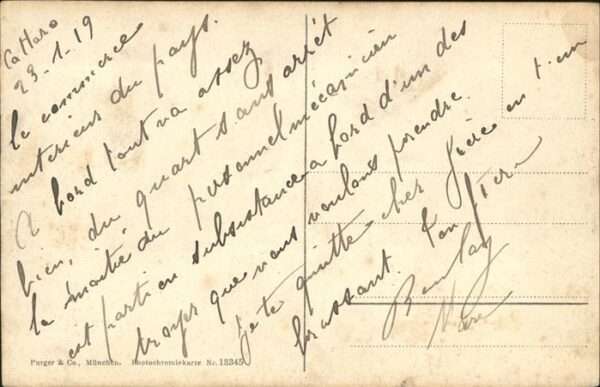 Cattaro
23-1-19
le commerce
intérieur du pays.
A bord tout va assez
bien, du quart sans arrêt
la moitié du personnel mécanicien
est parti en subsistance a bord d'un des
troyes que nous voulons prendre.
je te quitte cher frère en t'em
brassant. Ton frère
Purger & Co., München. Photochromiekarte Nr. 12345